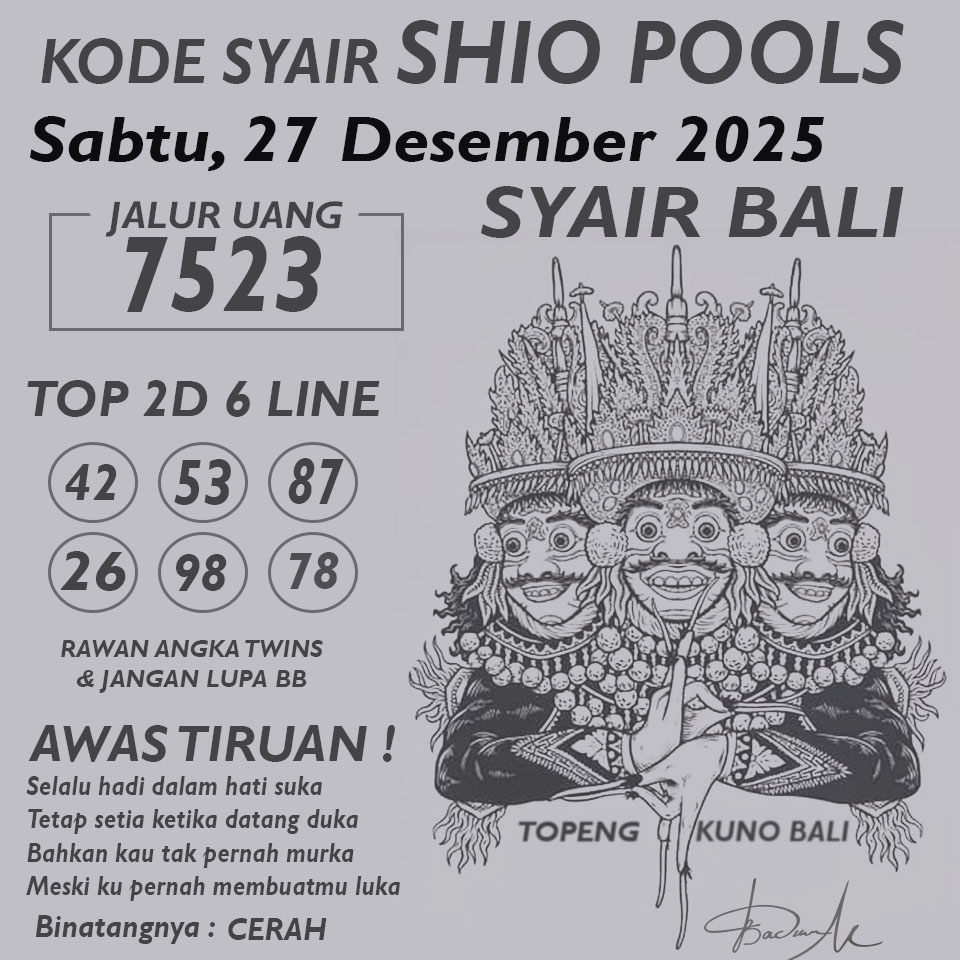 KODE SYAIR SHIO POOLS
Sabtu, 27 Desember 2025
SYAIR BALI
JALUR UANG
7523
TOP 2D 6 LINE
42 53 87
26 98 78
RAWAN ANGKA TWINS
& JANGAN LUPA BB
AWAS TIRUAN !
Selalu hadi dalam hati suka
Tetap setia ketika datang duka
Bahkan kau tak pernah murka
Meski ku pernah membuatmu luka
Binatangnya : CERAH
TOPENG KUNO BALI